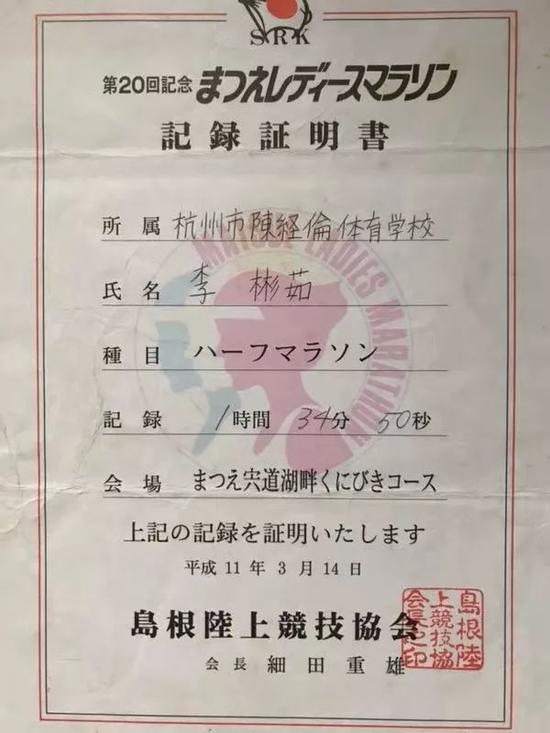 SRK
第20回記念 まつえレディースマラソン
記録証明書
所属 杭州市陳経倫体育学校
氏名 李 彬茹
種目 ハーフマラソン
記録 1時間 34分 50秒
会場 まつえ宍道湖畔くにびきコース
上記の記録を証明いたします
平成 11 年 3 月 14 日
島根陸上競技協会
会長 細田重雄
島根陸上競技協会長之印
MATSUE LADIES MARATHON